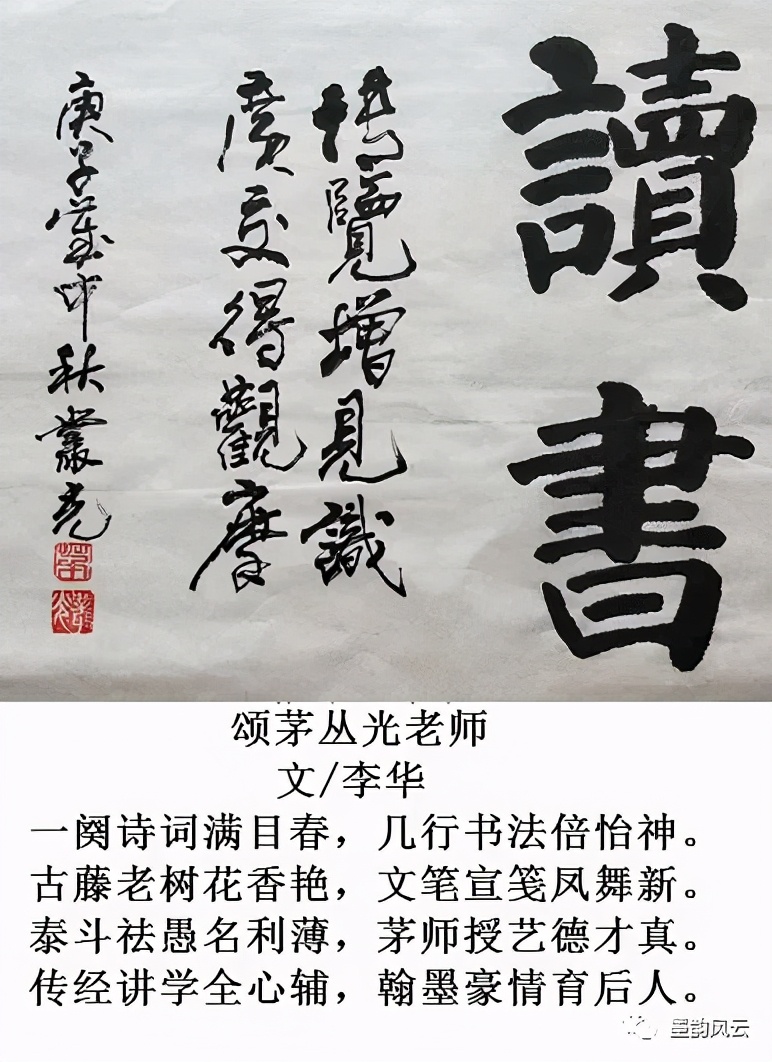 讀書
博覽增見識
廣交得觀摩
庚子歲中秋叢光
颂茅丛光老师
文/李华
一阕诗词满目春，几行书法倍怡神。
古藤老树花香艳，文笔宣笺凤舞新。
泰斗祛愚名利薄，茅师授艺德才真。
传经讲学全心辅，翰墨豪情育后人。
墨韵风云